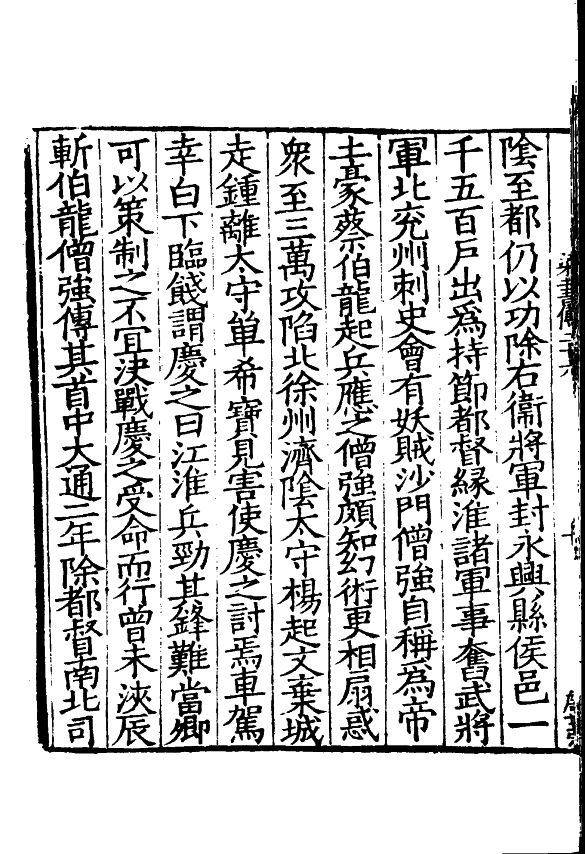 陰至都仍以功除右衛將軍封永興縣侯邑一
千五百戶出爲持節都督緣淮諸軍事奮武將
軍北兖州刺史會有妖賊沙門僧強自稱爲帝
土豪蔡伯龍起兵應之僧強頗知幻術更相扇惑
衆至三萬攻陷北徐州濟陰太守楊起文棄城
走鍾離太守單希寶見害使慶之討焉車駕
幸白下臨餞謂慶之曰江淮兵勁其鋒難當卿
可以策制之不宜決戰慶之受命而行曾未浹辰
斬伯龍僧強傳其首中大通二年除都督南北司